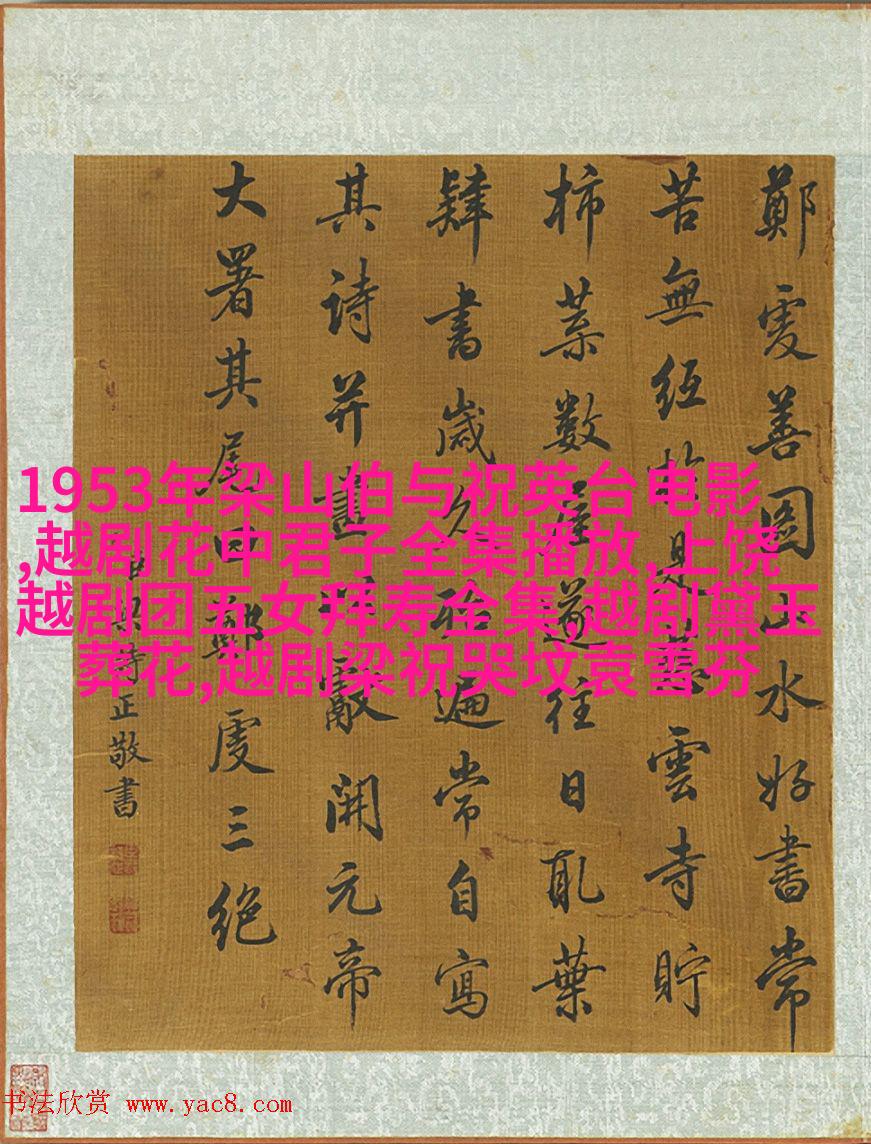 鄭虔善圖山水好書常
苦無紙於是慈雲寺貯
柿葉數屋遂往日取葉
肄書歲久殆遍常自寫
其詩并畫獻開元帝
大署其尾曰鄭虔三絕
正敬書
1953年梁山伯与祝英台电影
,越剧花中君子全集播放,上饶
越剧团五女拜寿全集,越剧黛玉
葬花,越剧梁祝哭坟袁雪芬
书法欣赏 www.yac8.com